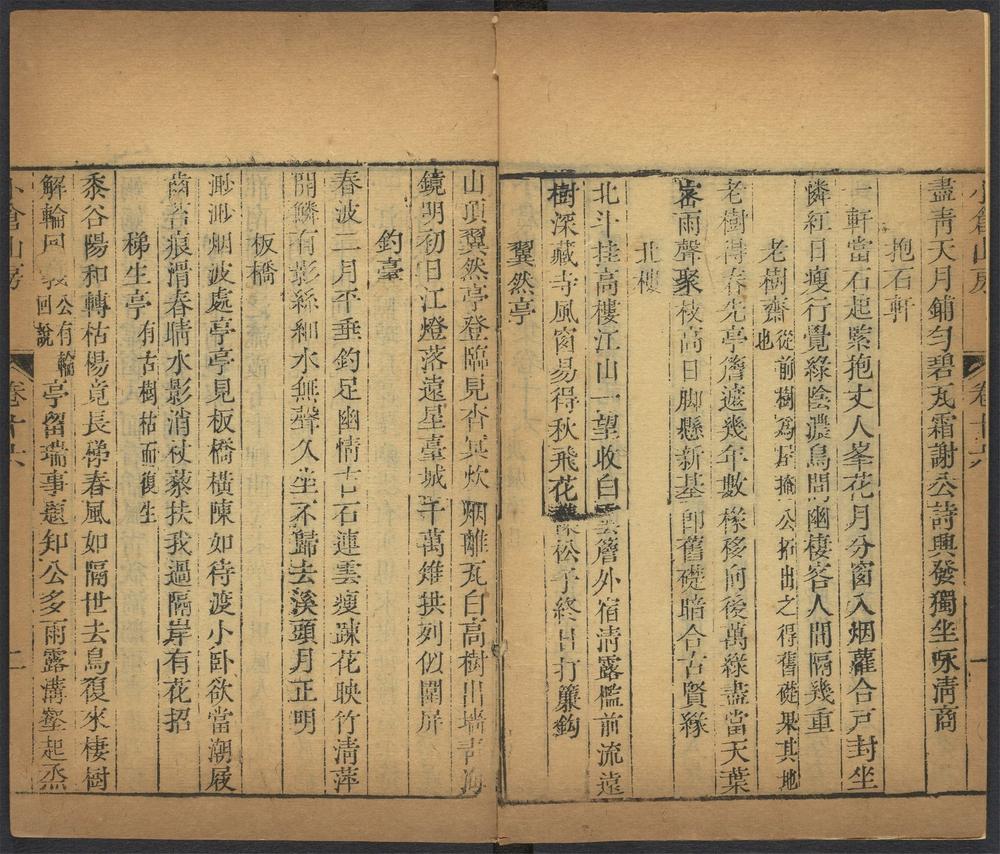 小倉山房 卷十六 一
盡青天月鋪勻碧瓦霜謝公詩興發獨坐咏清商
抱石軒
一軒當石起緊抱丈人峯花月分窗入烟蘿合戶封坐
憐紅日瘦行覺綠陰濃鳥問幽棲客人間隔幾重
老樹齋 從前樹爲屋掩公拓出之得舊礎果其地
老樹得春先亭簷遮幾年數椽移向後萬綠盡當天葉
密雨聲聚枝高日脚懸新基即舊礎暗合古賢緣
北樓
北斗挂高樓江山一望收白雲簷外宿淸露檻前流遠
樹深藏寺風窗易得秋飛花雜松子終日打簾鈎
翼然亭
山頂翼然亭登臨見杳冥炊烟離瓦白高樹出墻青海
鏡明初日江燈落遠星臺城千萬雉拱列似圍屏
釣臺
春波二月平垂釣足幽情古石連雲瘦踈花映竹淸萍
開鱗有影絲細水無聲久坐不歸去溪頭月正明
板橋
渺渺烟波處亭亭見板橋橫陳如待渡小卧欲當潮屐
齒苔痕滑春晴水影消杖藜扶我過隔岸有花招
梯生亭 有古樹枯而復生
黍谷陽和轉枯楊竟長稊春風如隔世去鳥復來棲樹
解輪回義 公有輪回說 亭留瑞事題知公多雨露溝壑起烝
小倉山房 卷十六 二